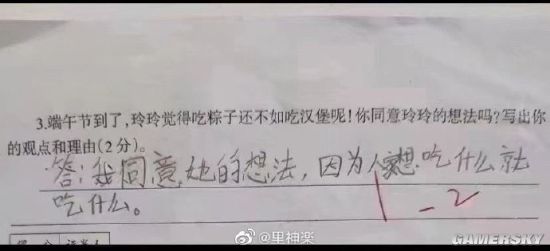 3.端午节到了,玲玲觉得吃粽子还不如吃汉堡呢!你同意玲玲的想法吗?写出你
的观点和理由(2分)。
答:我同意她的想法,因为人想吃什么就
吃什么。
-2
@里神楽
GAMERSKY